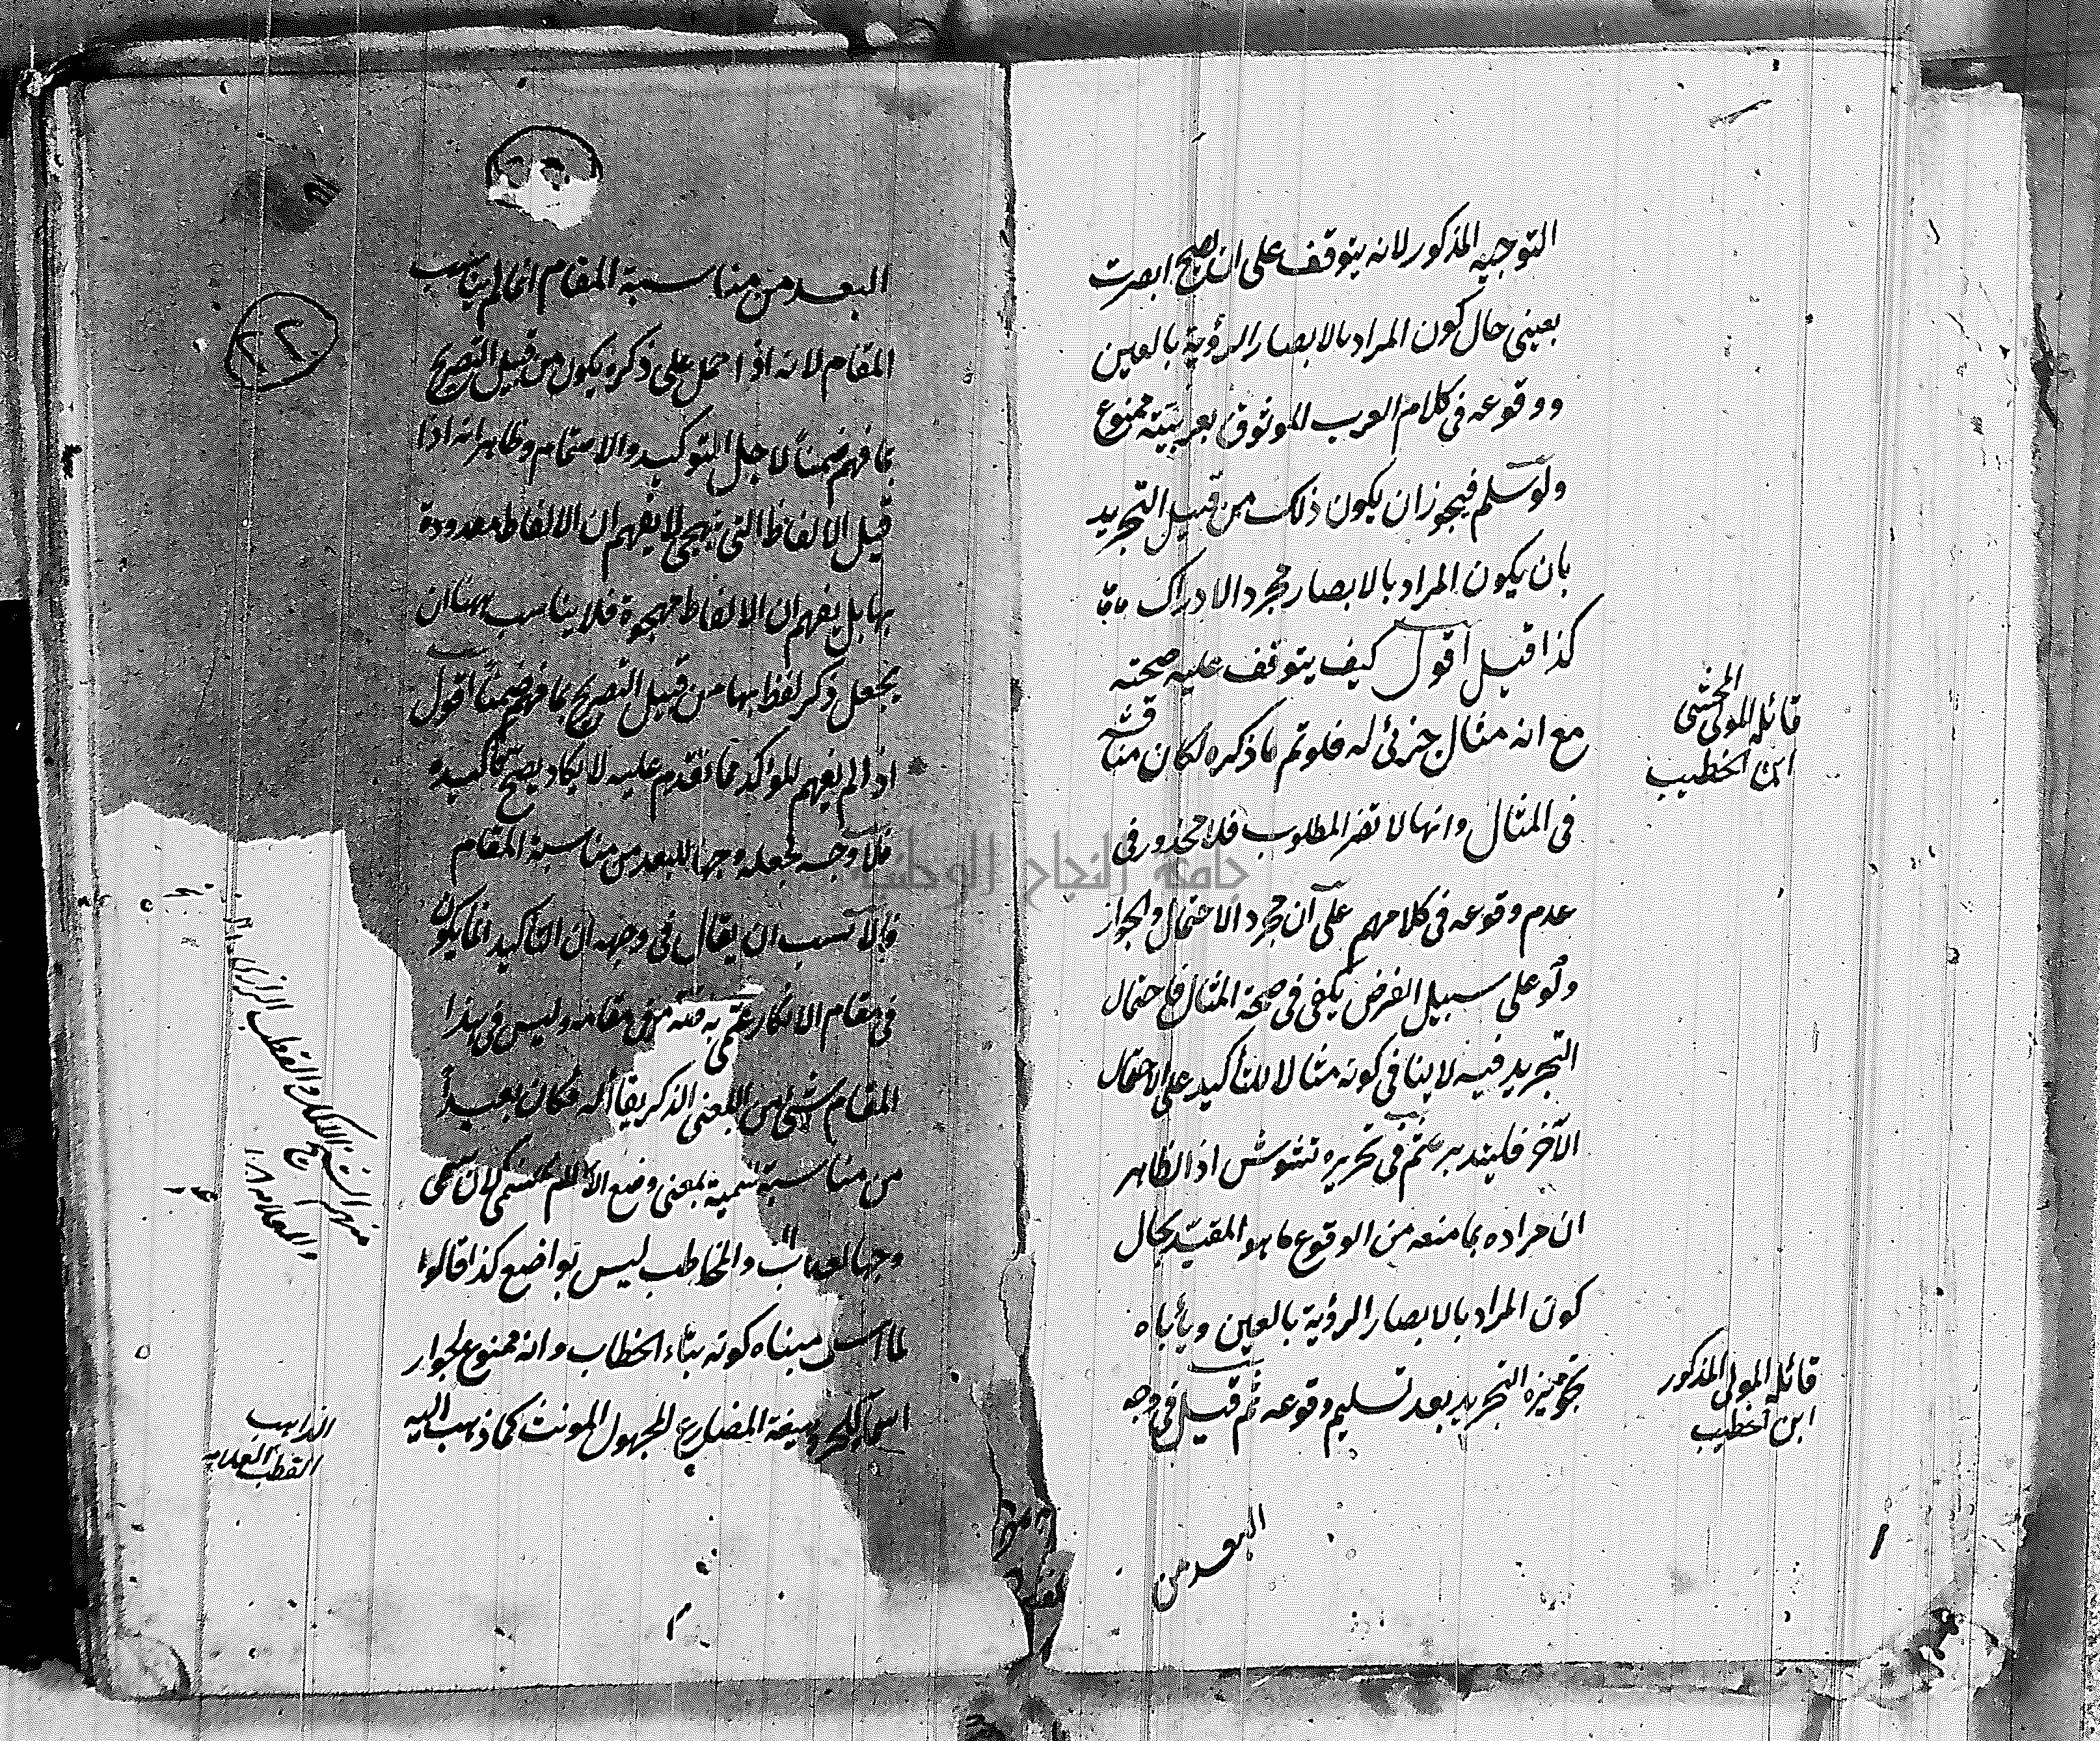 التوجيه المذكور لانه يتوقف على ان يصح ابصرت
بعينى حال كون المراد بالابصار الرؤية بالعين
ووقوعه فى كلام العرب الموثوق بعربيته ممنوع
ولو سلم فيجوز ان يكون ذلك من قبيل التجريد
بان يكون المراد بالابصار مجرد الادراك
كذا قيل اقول كيف يتوقف عليه صحته
مع انه مثال جزئى له فلو تم ما ذكره لكان مناقشة
فى المثال وانها لا تضر المطلوب فلا محذور فى
عدم وقوعه فى كلامهم على ان مجرد الاحتمال والجواز
ولو على سبيل الفرض يكفى فى صحة المثال فاحتمال
التجريد فيه لا ينافى كونه مثالا للتأكيد على الاحتمال
الآخر فليتدبر ثم فى تحريره تشوش اذ الظاهر
ان مراده بما منعه من الوقوع ما هو المقيد بحال
كون المراد بالابصار الرؤية بالعين ويأباه
تجويزه التجريد بعد تسليم وقوعه ثم قيل فى وجه
البعد من
قائله المولى المحشى
ابن الخطيب
قائله المولى المذكور
ابن الخطيب
البعد من مناسبة المقام انما لم يناسب
المقام لانه اذا حمل على ذكره يكون من قبيل التصريح
بما فهم ضمنا لاجل التوكيد والاهتمام وظاهر انه اذا
قيل الالفاظ التى تهجى لا يفهم ان الالفاظ معدودة
بها بل يفهم ان الالفاظ مهجوة فلا يناسب ههنا ان
يجعل ذكر لفظ بها من قبيل التصريح بما فهم ضمنا اقول
اذا لم يفهم المؤكد مما تقدم عليه لا يكاد يصح تأكيده
فلا وجه لجعله وجها للبعد من مناسبة المقام
والانسب ان يقال فى وجهه ان التأكيد انما يكون
فى مقام الانكار مقامه وليس فى هذا
المقام شئ من المعنى الذى يقال له فكان بعيدا
من مناسبة تسمية بمعنى وضع الاسم
وجها والمخاطب ليس بواضع كذا قالوا
مبناه كونه بتاء الخطاب وانه ممنوع لجواز
بصيغة المضارع المجهول المونث كما ذهب اليه
منهم الشيخ الاكمل والقطب الرازى
والعلامه
الذاهب
القطب العلامه
٢٢
جامعة النجاح الوطنية